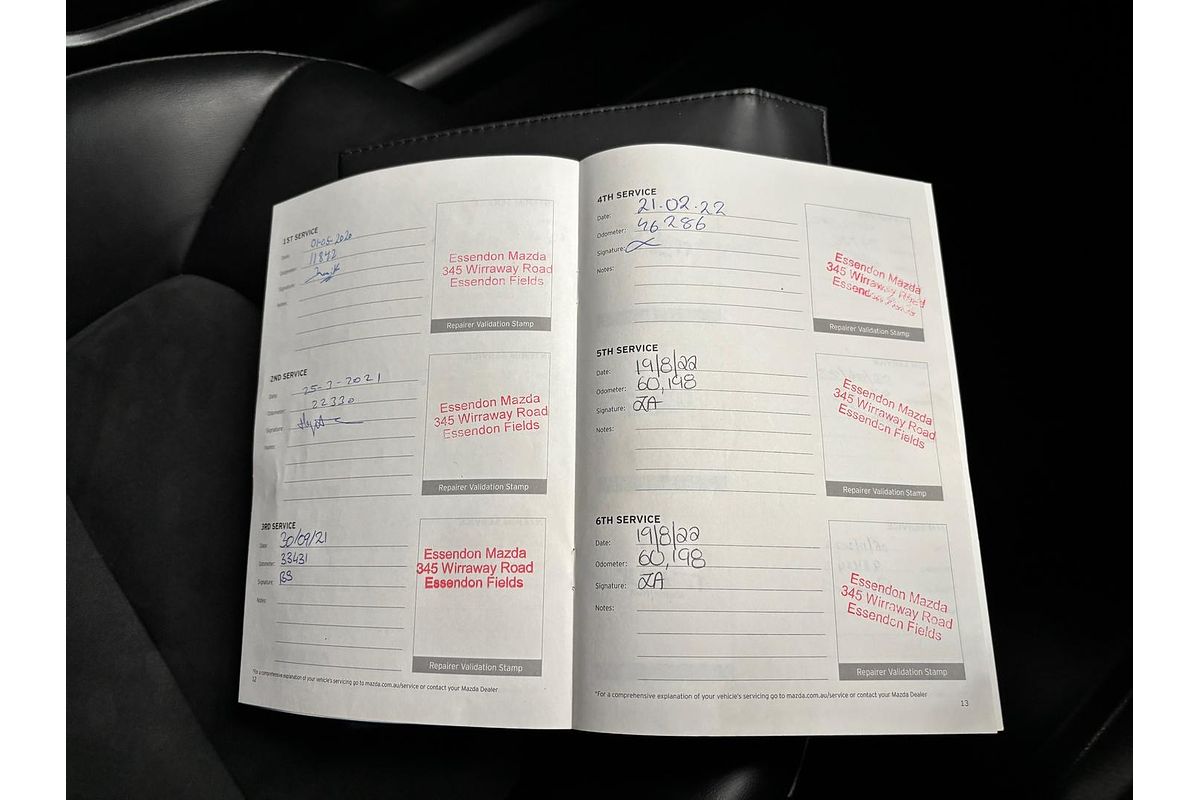 1ST SERVICE
Date: 01-05-2020
Odometer: 11842
Signature:
Notes:
Essendon Mazda
345 Wirraway Road
Essendon Fields
Repairer Validation Stamp
2ND SERVICE
Date: 25-2021
Odometer: 22330
Signature:
Notes:
Essendon Mazda
345 Wirraway Road
Essendon Fields
Repairer Validation Stamp
3RD SERVICE
Date: 30/09/21
Odometer: 33431
Signature: BS
Notes:
Essendon Mazda
345 Wirraway Road
Essendon Fields
Repairer Validation Stamp
*For a comprehensive explanation of your vehicle's servicing go to mazda.com.au/service or contact your Mazda Dealer
12
4TH SERVICE
Date: 21.02.22
Odometer: 46286
Signature:
Notes:
Essendon Mazda
345 Wirraway Road
Essendon Fields
Repairer Validation Stamp
5TH SERVICE
Date: 19/8/22
Odometer: 60,198
Signature: JA
Notes:
Essendon Mazda
345 Wirraway Road
Essendon Fields
Repairer Validation Stamp
6TH SERVICE
Date: 19/8/22
Odometer: 60,198
Signature: JA
Notes:
Essendon Mazda
345 Wirraway Road
Essendon Fields
Repairer Validation Stamp
*For a comprehensive explanation of your vehicle's servicing go to mazda.com.au/service or contact your Mazda Dealer
13